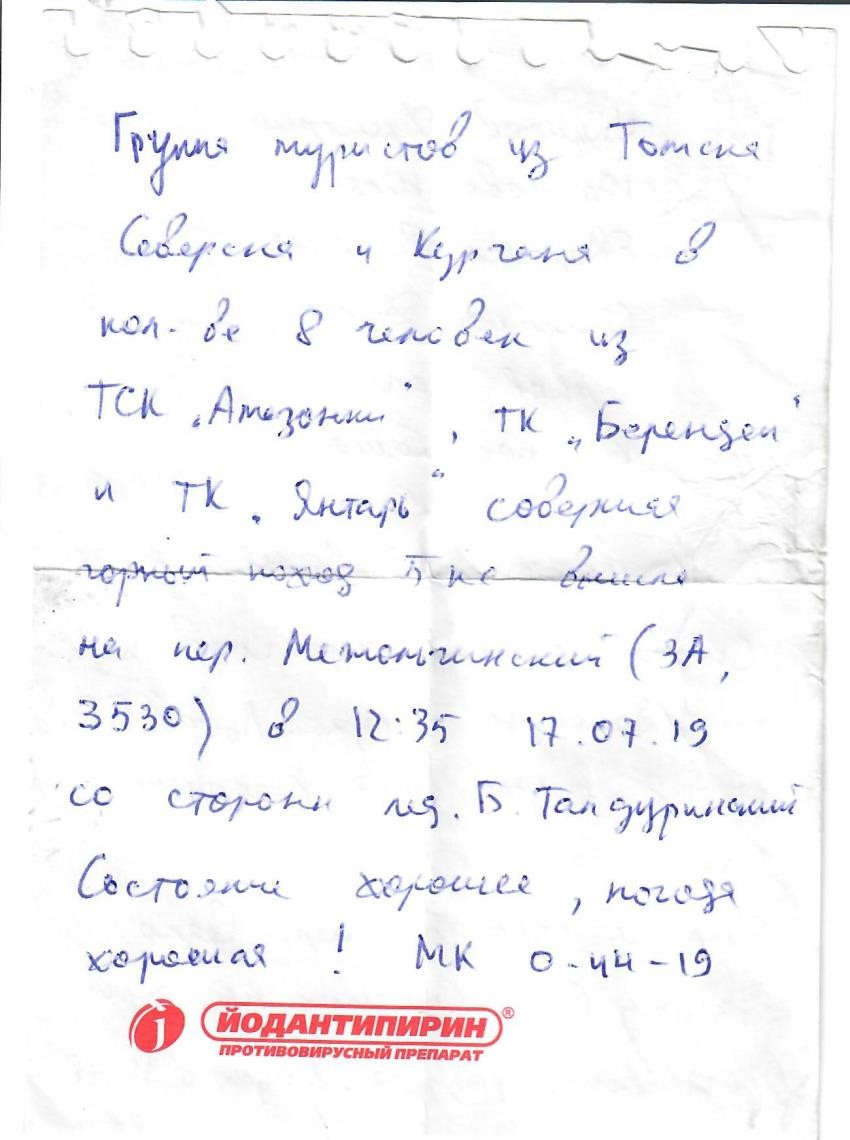 Группа туристов из Томска
Северска и Кургана в
кол-ве 8 человек из
ТСК "Амазонки", ТК "Берендеи"
и ТК "Янтарь" совершая
горный поход 5 кс вышла
на пер. (3А,
3530) в 12:35 17.07.19
со стороны лед. Б. Талдуринский
Состояние хорошее, погода
хорошая! МК 0-44-19
ЙОДАНТИПИРИН®
ПРОТИВОВИРУСНЫЙ ПРЕПАРАТ